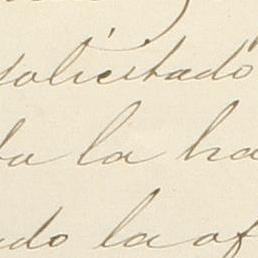 solicitado
la ha
ado la of